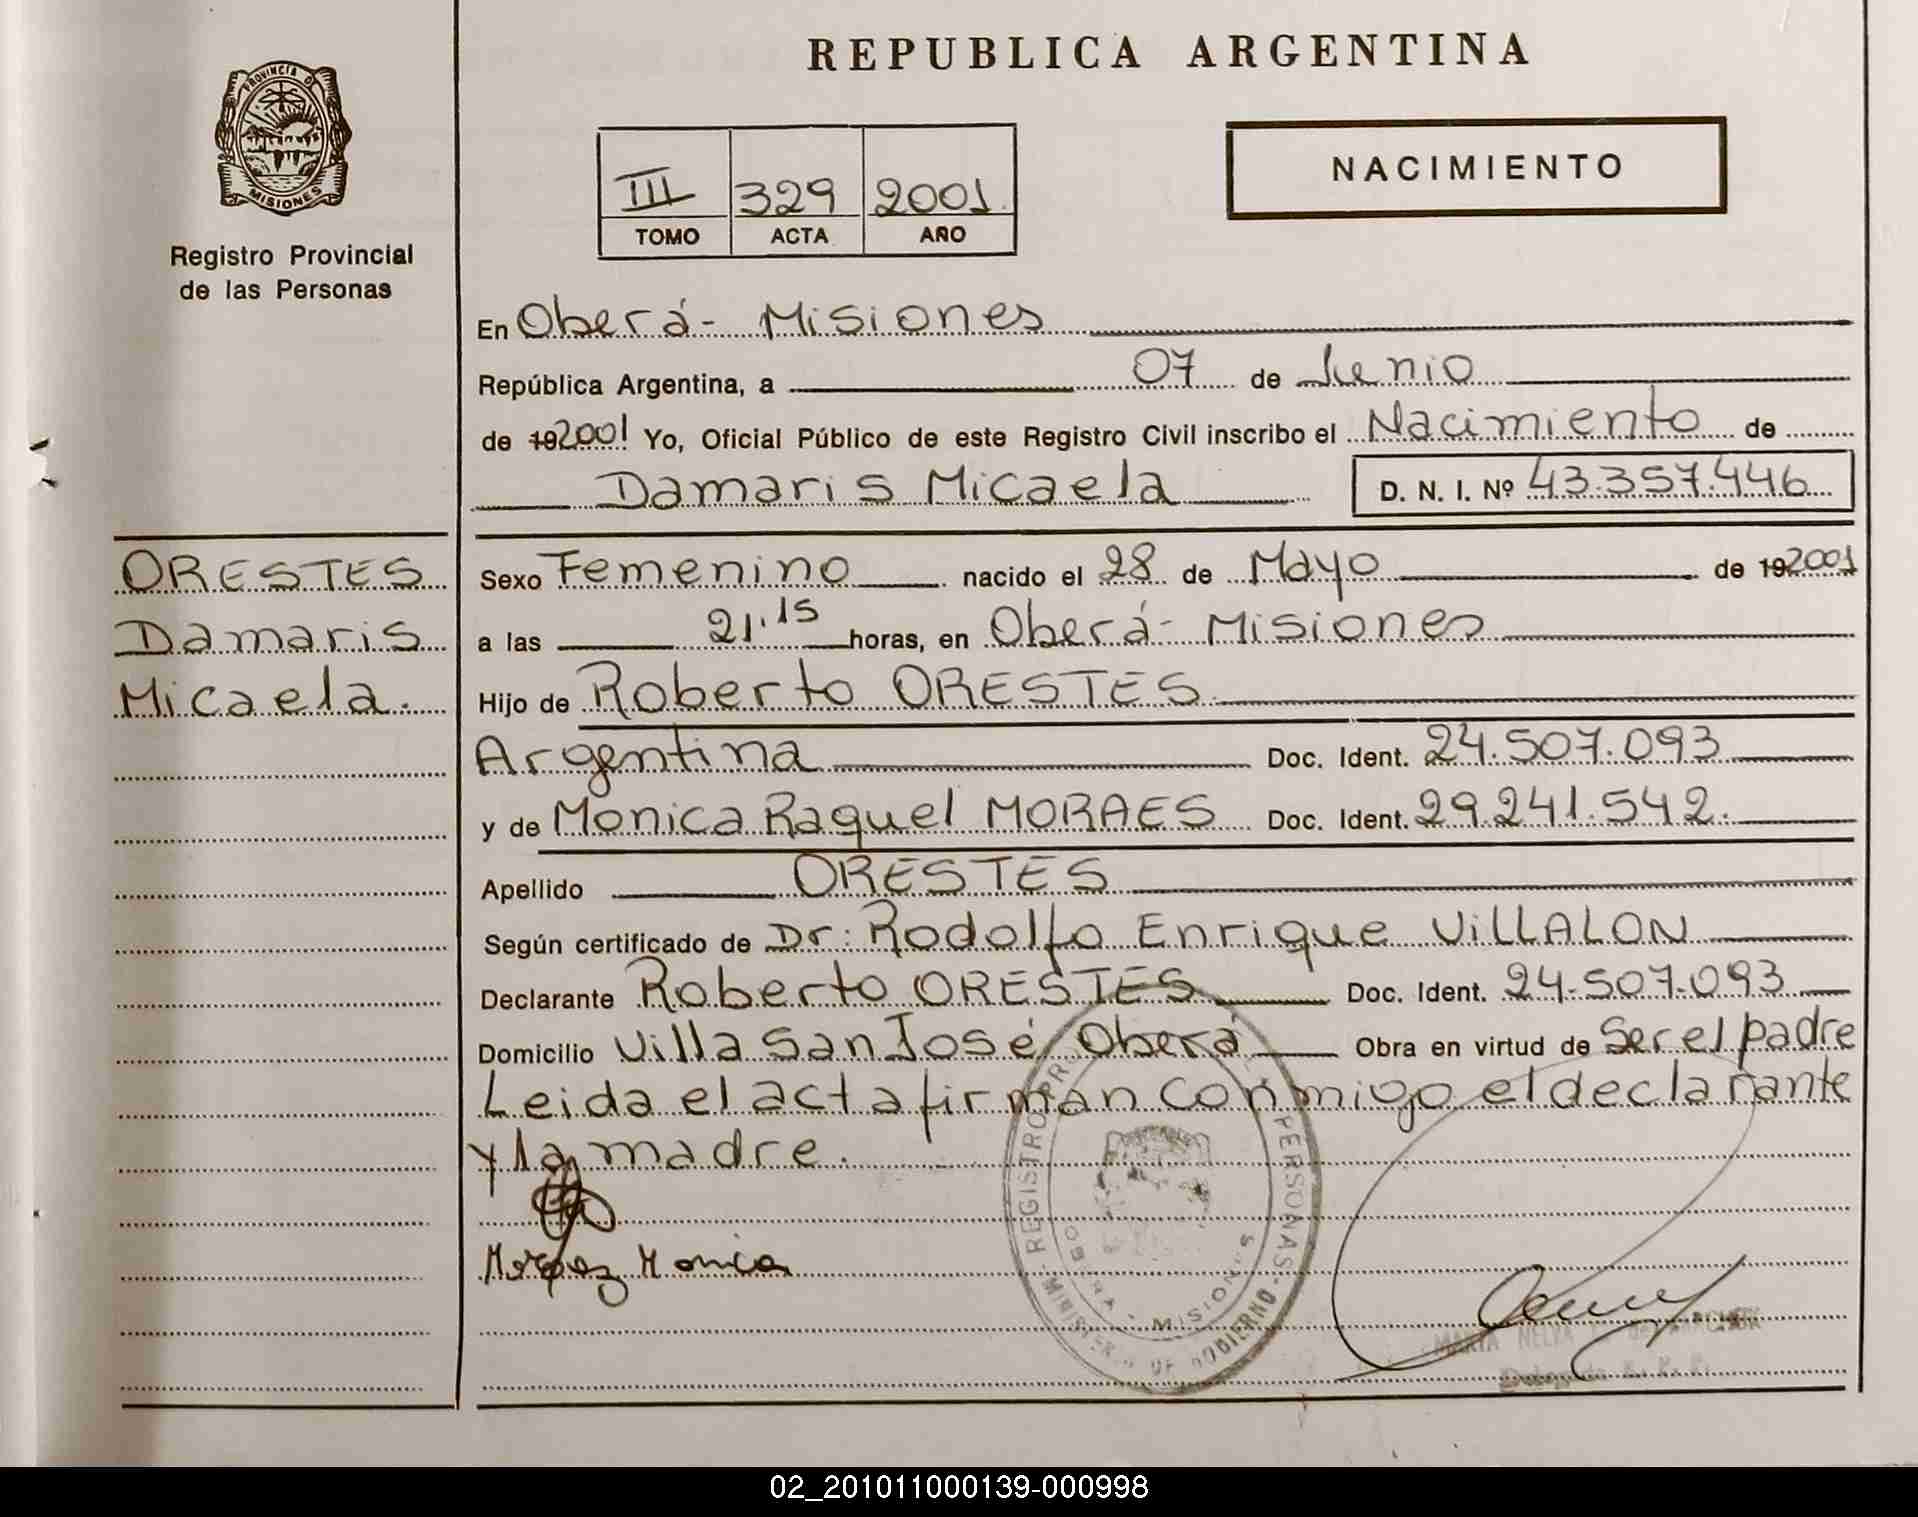 REPUBLICA ARGENTINA
PROVINCIA DE
MISIONES
Registro Provincial
de las Personas
III 329 2001
TOMO ACTA AÑO
NACIMIENTO
En Oberá - Misiones
República Argentina, a 07 de Junio
de 192001 Yo, Oficial Público de este Registro Civil inscribo el Nacimiento de
Damaris Micaela D. N. I. Nº 43.357.446
ORESTES
Damaris
Micaela.
Sexo Femenino nacido el 28 de Mayo de 192001
a las 21.15 horas, en Oberá - Misiones
Hijo de Roberto ORESTES
Argentina Doc. Ident. 24.507.093
y de Monica Raquel MORAES Doc. Ident. 29.241.542.
Apellido ORESTES
Según certificado de Dr: Rodolfo Enrique ViLLALON
Declarante Roberto ORESTES Doc. Ident. 24.507.093
Domicilio Villa San José Oberá Obra en virtud de Ser el padre
Leida el acta firman conmigo el declarante
y la madre.
Monica
REGISTRO PERSONAS - MINISTERIO DE GOBIERNO
OBERA - MISIONES
MARTA NELYA
02_201011000139-000998